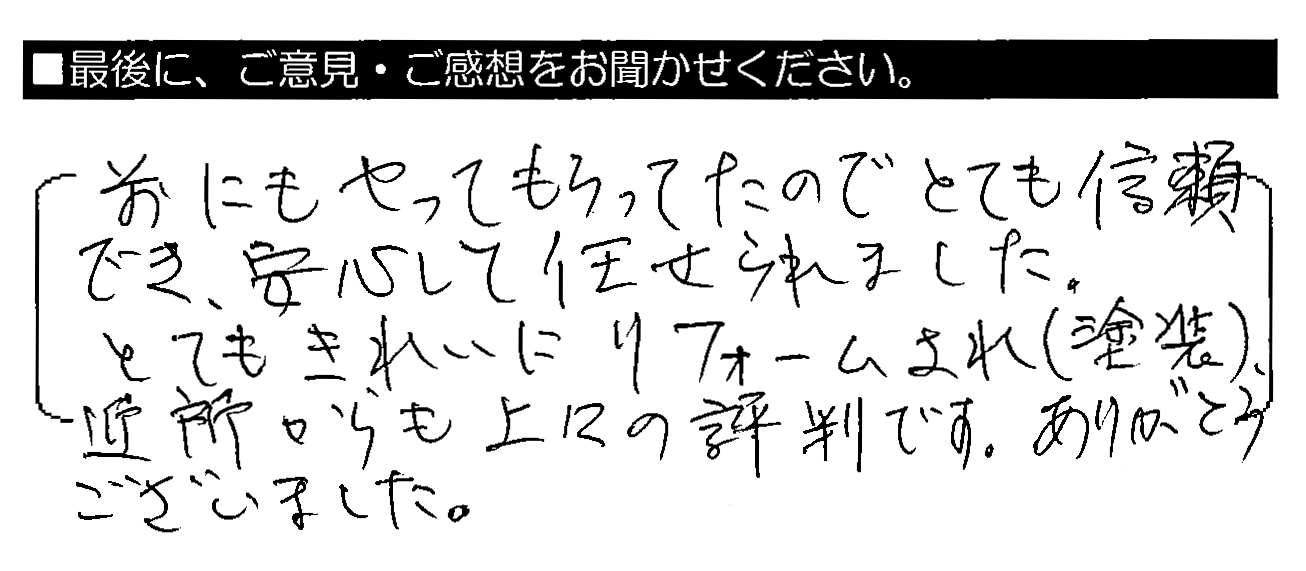 ■最後に、ご意見・ご感想をお聞かせください。
前にもやってもらってたのでとても信頼
でき、安心して任せられました。
とてもきれいにリフォームされ(塗装)、
近所からも上々の評判です。ありがとう
ございました。